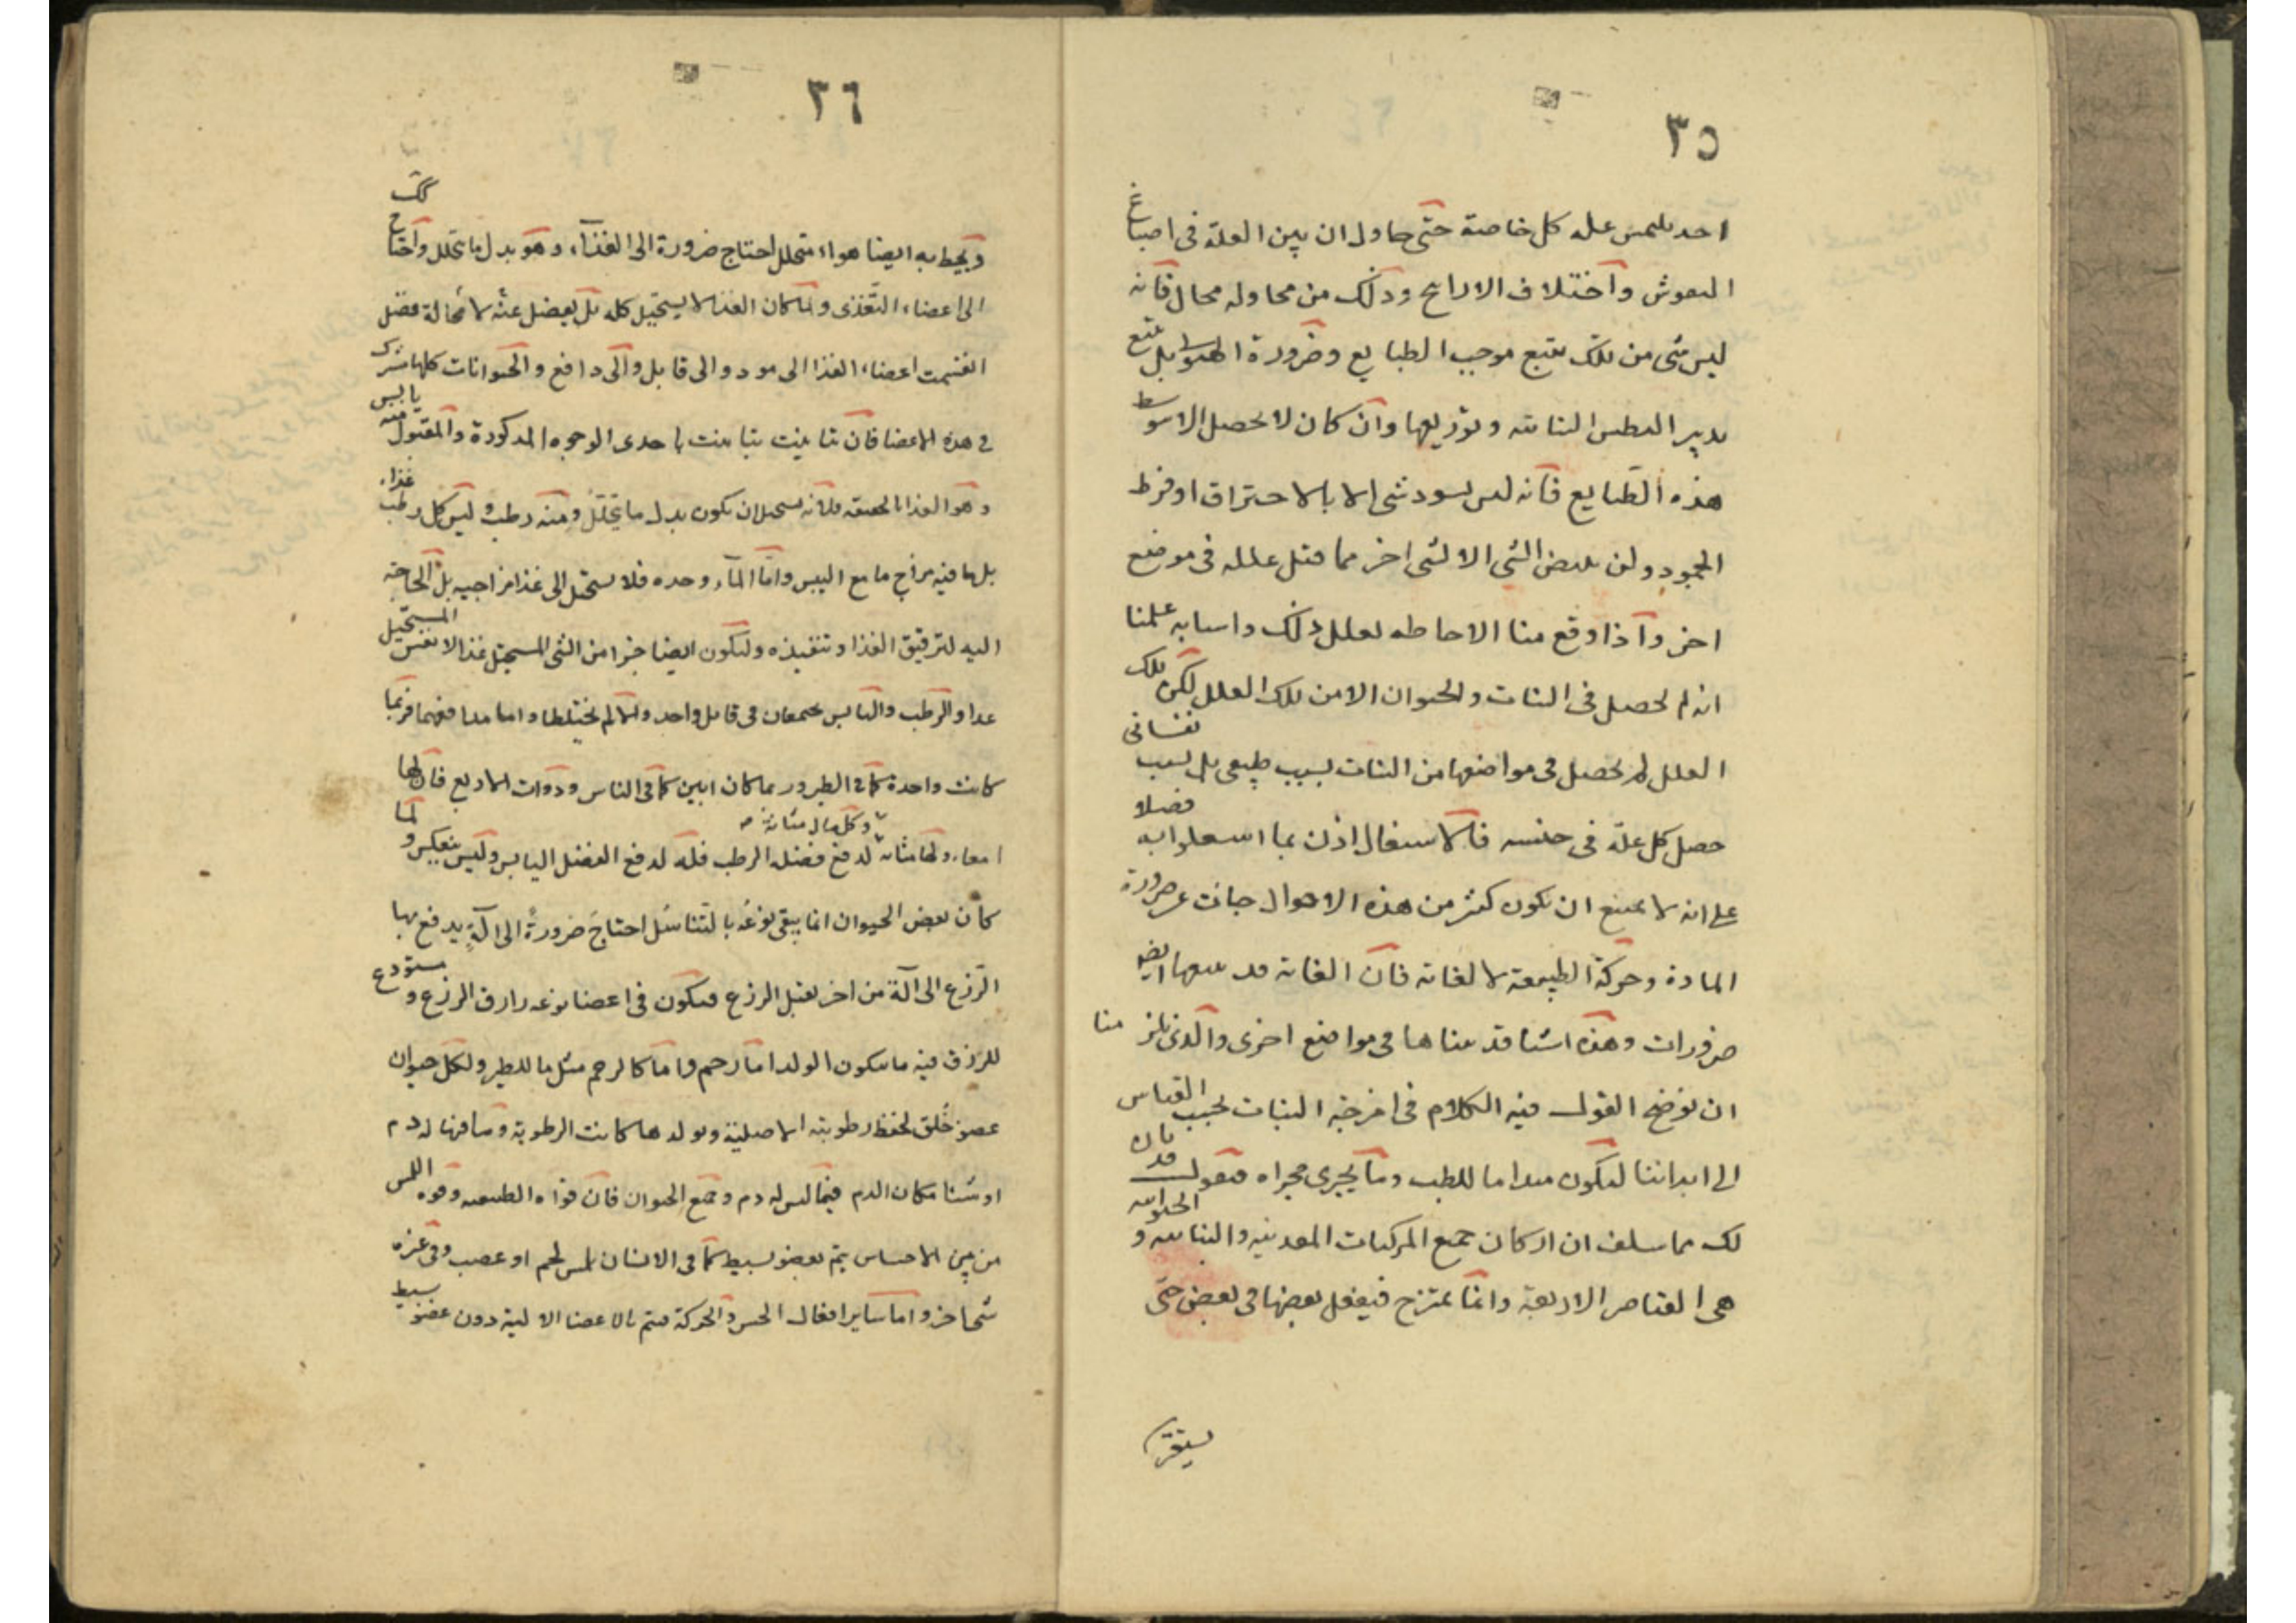 ٣٥
احد يلتمس علة كل خاصة حتى حاول ان يبين العلة فى اصباغ
النقوش واختلاف الاراييح وذلك من محاوله محال فانه
ليس شى من تلك يتبع موجب الطبايع وضرورة الهيولى بل يتبع
تدبير النفس النباتيه وتوزيعها وان كان لا يحصل الا بتوسط
هذه الطبايع فانه ليس يسود شى الا بالاحتراق او فرط
الجمود ولن يبيض الشى الا لشى اخر مما قيل علله فى موضع
اخر واذا وقع منا الاحاطه بعلل ذلك واسبابه علمنا
انه لم يحصل فى النبات والحيوان الا من تلك العلل لكن تلك
العلل لم تحصل فى مواضعها من النبات بسبب طبيعى بل بسبب نفسانى
حصل كل علة فى جنسه فالاشتغال اذن بما اشتغلوا به فضلا
على انه لا يمتنع ان تكون كثير من هذه الاحوال جات عن ضرورة
المادة وحركة الطبيعة لا لغاته فان الغاية قد يتبعها ايضا
ضرورات وهذه اشيا قد بيناها فى مواضع اخرى والذى يلزمنا
ان نوضح القول فيه الكلام فى امزجة النبات بحسب القياس
الى ابداننا ليكون مبداما للطب وما يجرى مجراه فنقول قد بان
لك مما سلف ان اركان جميع المركبات المعدنيه والنباتيه والحيوانيه
هى العناصر الاربعة وانها تمتزج فيفعل بعضها فى بعض حتى
يستقر
٣٦
ويحيط به ايضا هواء متحلل احتاج ضرورة الى الغذاء، وهو بدل ما يتحلل واحتاج
الى اعضاء التغذى ولما كان الغذا لا يستحيل كله بل يفضل عنه لا محالة فضل
انقسمت اعضاء الغذا الى مورد والى قابل والى دافع والحيوانات كلها تشترك
فى هذه الاعضا فان تباينت تباينت باحدى الوجوه المذكورة والمقبول منه يابس
وهو الغذا بالحقيقه فلانه يستحيل ان يكون بدل ما يتحلل ومنه رطب وليس كل رطب غذاء
بل ما فيه مزاج ما مع اليبس واما الماء وحده فلا يستحيل الى غذا مزاجيه بل الحاجة
اليه لترقيق الغذا وتنفيذه وليكون ايضا جزا من الشى المستحيل غذا لا نفس المستحيل
غذا والرطب واليابس يجتمعان فى قابل واحد والا لم يختلطا واما مدافعهما فربما
كانت واحدة كما فى الطير وربما كان اثنين كما فى الناس وذوات الاربع فان لها
امعاء ولها مثانة لدفع فضلة الرطب وكل ما له مثانة فله لدفع الفضل اليابس وليس ينعكس ولما
كان بعض الحيوان انما يبقى نوعه بالتناسل احتاج ضرورة الى آلة يدفع بها
الزرع الى آلة من اخر يقبل الزرع فيكون فى اعضا نوعه زارق الزرع ومستودع
للزرق فيه ما يتكون الولد اما رحم واما كالرحم مثل ما للطير ولكل حيوان
عضو خلق لحفظ رطوبته الاصلية وتولدها كانت الرطوبة وسافرنها له دم
او شيئا مكان الدم فيما ليس له دم وجميع الحيوان فان قواه الطبيعيه وقوه اللمس
من بين الاحساس يتم بعضو بسيط كما فى الانسان لمس لحم او عصب وفى غيره
شى اخر واما ساير افعال الحس والحركة فيتم بالاعضا الالية دون عضو بسيط